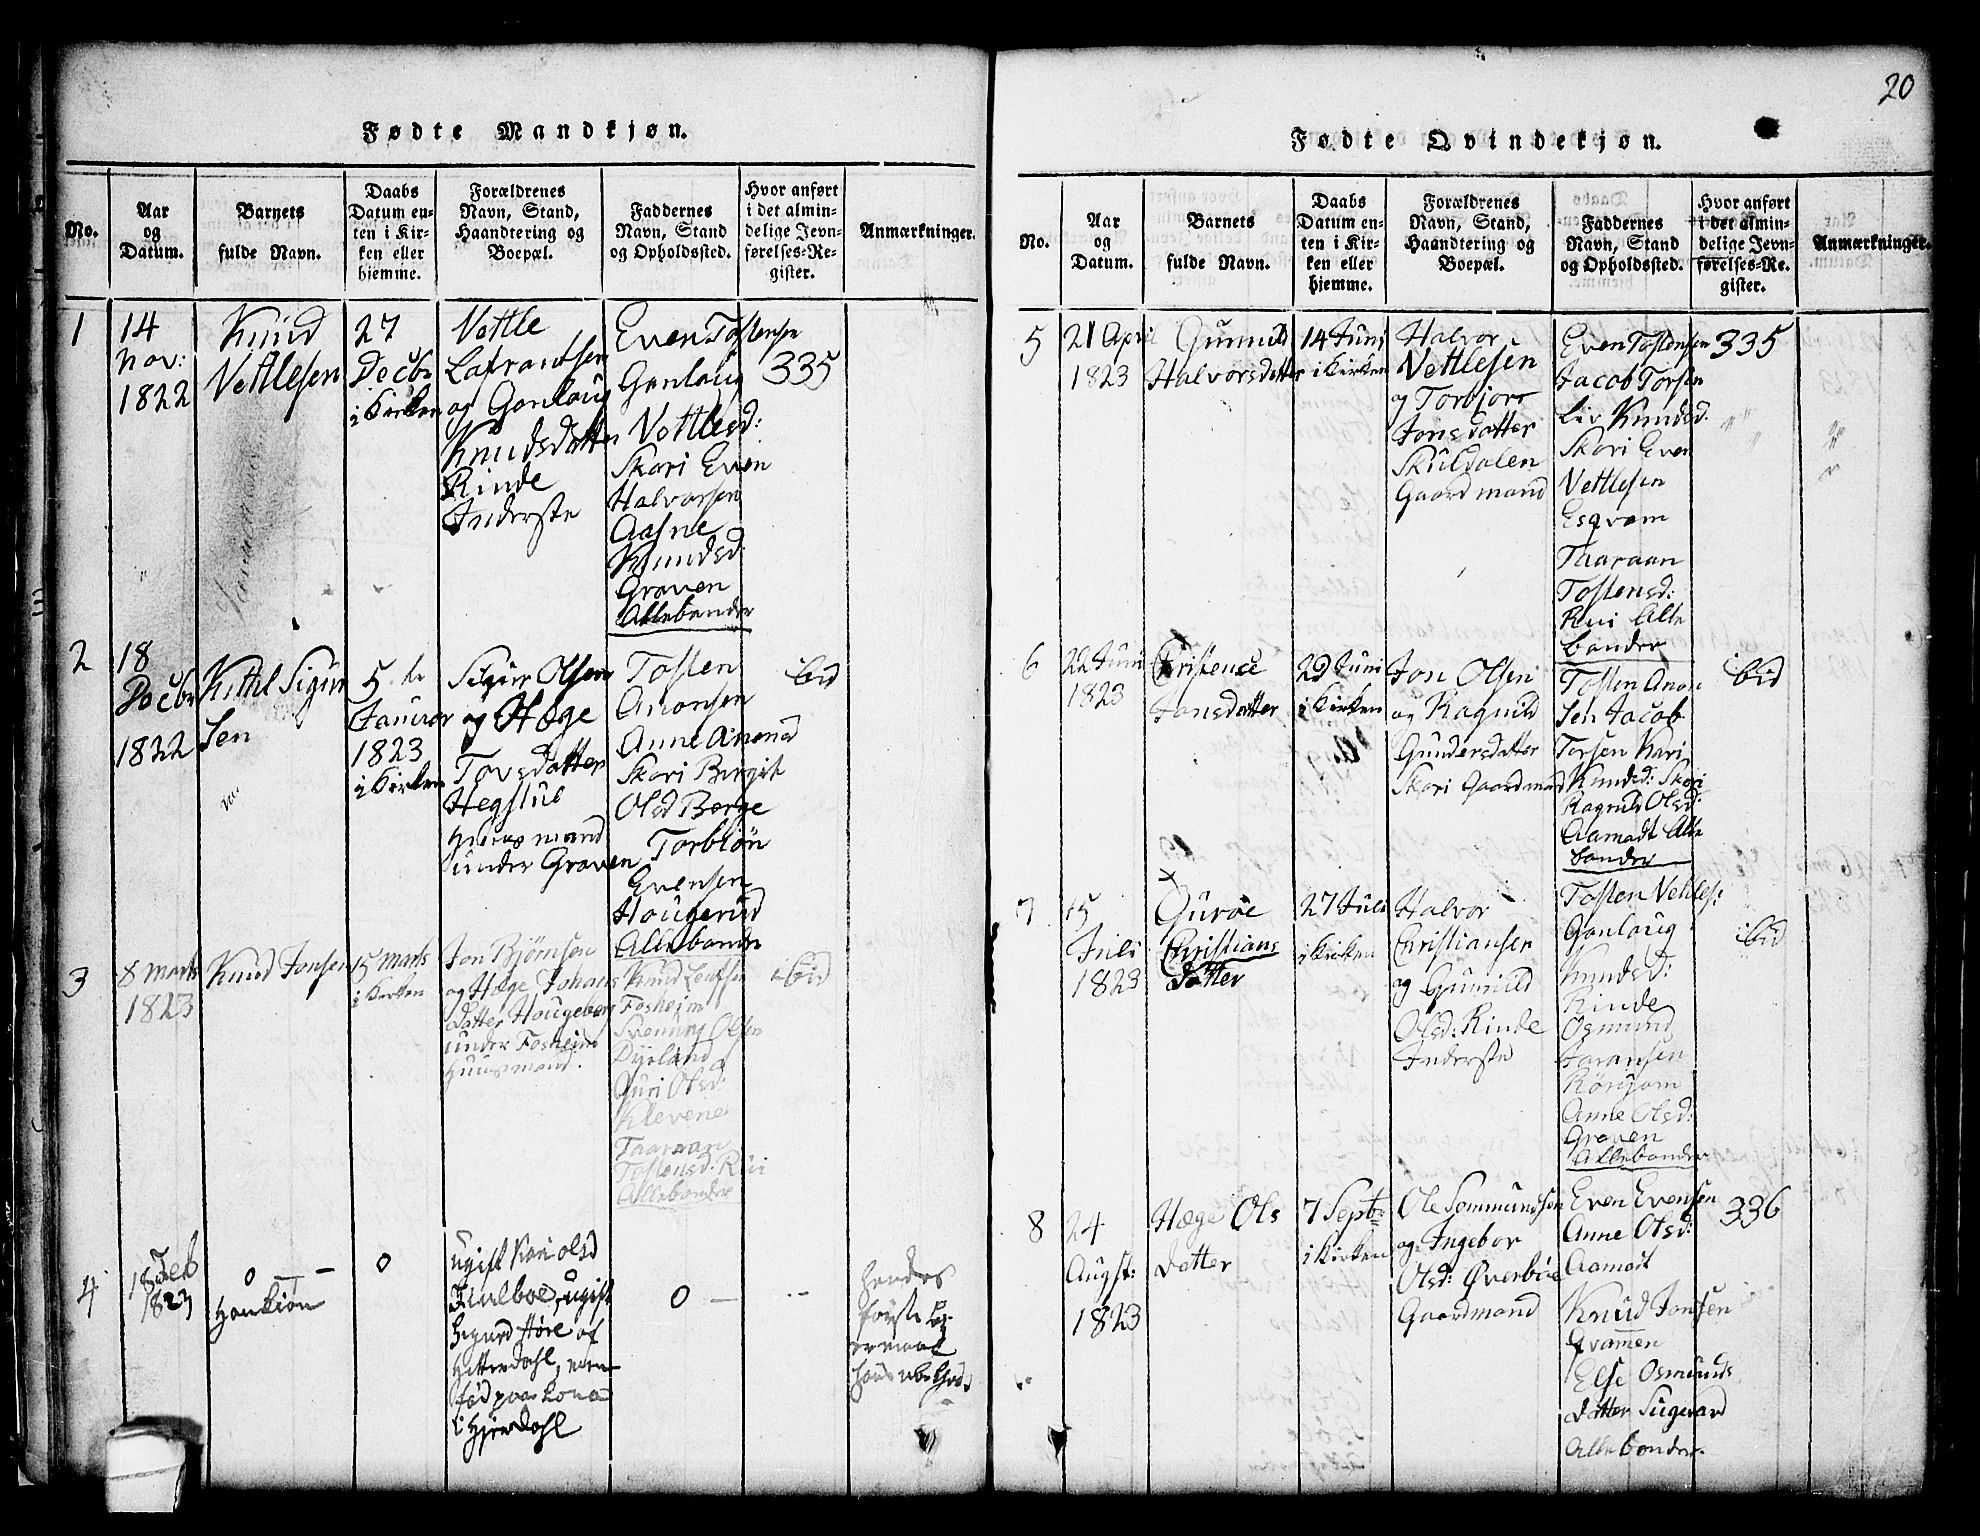 20
Fødte Mandkjøn.
No.
Aar
og
Datum.
Barnets
fulde Navn.
Daabs
Datum en-
ten i Kir-
ken eller
hjemme.
Forældrenes
Navn, Stand,
Haandtering og
Boepæl.
Faddernes
Navn, Stand
og Opholdssted.
Hvor anført
i det almin-
delige Jevn-
førelses-Re-
gister.
Anmærkninger.
1
14
Nov:
1822
Knud
Vettlesen
27
Decbr
i Kirken
Vettle
Lafrantsen
og Gonloug
Knudsdatter
Rinde
Inderste
Even Tostensen
Gonloug
Vettlesd:
Skori Even
Halvorsen
Aasne
Knudsd:
Groven
Alle bønder
335
2
18
Decbr
1822
Kittil Sigur
Sen
5 te
Januar
1823
i Kirken
Sigur Olsen
og Hæge
Tovsdatter
Hegstul
Huusmand
under Groven
Tosten
Amonsen
Anne Amond
Skori Birgit
Olsd Berge
Torbiön
Evensen
Hougerud
Alle bønder
ibid
3
8 Marts
1823
Knud Jonsen
15 Marts
i Kirken
Jon Björnsen
og Hæge Johans
datter Hougeberg
under Fosheim
Huusmand.
Knud Leafsen
Fosheim
Svenung Olsen
Dyrland
Guri Olsd:
Klevene
Taaraan
Tostensd: Rui
Alle bønder
ibid
4
18 Feb
1823
0 —
Hankiøn
0
ugift Kari Olsd
ugift
Sigurd Høre af
Hitterdahl,
i Hjerdahl
0 —
hendes
første
Fødte Qvindekjøn.
No.
Aar
og
Datum.
Barnets
fulde Navn.
Daabs
Datum en-
ten i Kir-
ken eller
hjemme.
Forældrenes
Navn, Stand,
Haandtering og
Boepæl.
Faddernes
Navn, Stand
og Opholdssted.
Hvor anført
i det almin-
delige Jevn-
førelses-Re-
gister.
Anmærkninger.
5
21 April
1823
Gunnild
Halvorsdatter
14 Juni
i Kirken
Halvor
Vettlesen
og Torbjor
Jonsdatter
Skuldalen
Gaardmand
Even Tostensen
Jacob Torsen
Liv Knudsd:
Skori Even
Vettlesen
Esqvam
Taaraan
Tostensd:
Rui Alle
bønder
335
6
22 Juni
1823
Christence
Jonsdatter
29 Juni
i Kirken
Jon Olsen
og Ragnild
Gundersdatter
Skori Gaardmand
Tosten Amon
Sen Jacob
Torsen Kari
Knudsd: Skori
Ragnild Olsd:
Aamodt Alle
bønder
ibid
7
15
Juli
1823
Guroe
Christians
datter
27 Juli
i Kirken
Halvor
Christiansen
og Gunild
Olsd: Rinde
Inderste
Tosten Vettles:
Gonloug
Knudsd:
Rinde
Osmund
Joransen
Anne Olsd:
Groven
Alle bønder
ibid
8
24
Augst:
1823
Hæge Ols
datter
7 Septbr
i Kirken
Ole Sommundsen
og Ingebor
Olsd: Øverbøe
Gaardmand
Even Evensen
Anne Olsd:
Aamodt
Knud Jonsen
Qvammen
Else Osmunds
datter
Alle bønder.
336